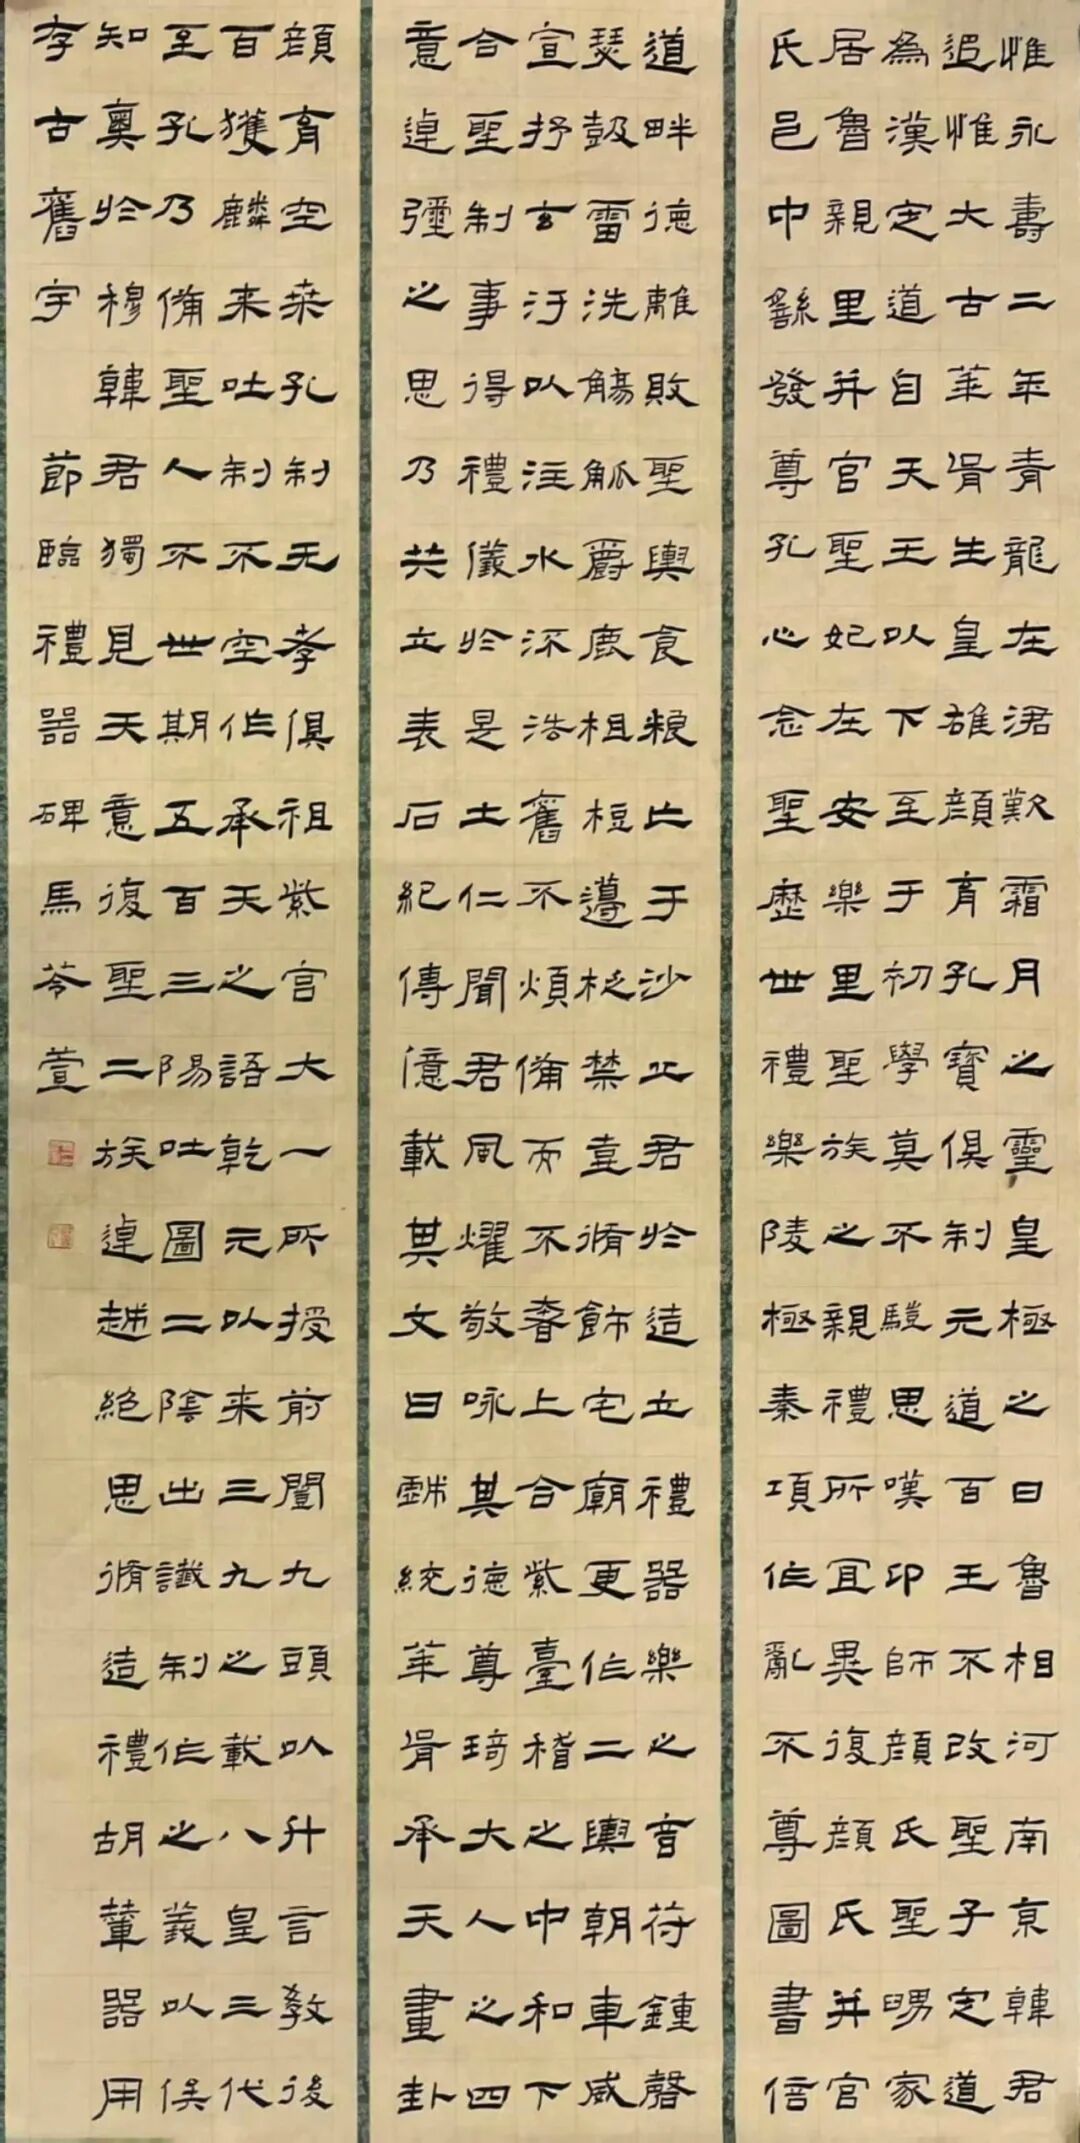 惟永壽二年青龍在涒歎霜月之靈皇極之日魯相河南京韓君
追惟大古華胥生皇雄顏育孔寶俱制元道百王不改聖子定道
為漢定道自天王以下至于初學莫不驥思嘆卬師顏氏聖舅家
居魯親里并官聖妃在安樂里聖族之親禮所宜異復顏氏并官
氏邑中繇發尊孔心念聖歷世禮樂陵極秦項作亂不尊圖書倍
道畔德離敗聖輿食糧亡于沙丘君於造立禮器樂之音符鍾磬
瑟鼓雷洗觴觚爵鹿柤梪籩柉禁壺脩飾宅廟更作二輿朝車威
宣抒玄汙以注水流法舊不煩備而不奢上合紫臺稽之中和下
合聖制事得禮儀於是土仁聞君風燿敬咏其德尊琦大人之四
意逴彌之思乃共立表石紀傳億載其文曰戲統華胥承天畫卦
顏育空桑孔制元孝俱祖紫宮大一所授前闓九頭以升言教後
百獲麟來吐制不空作承天之語乾元以來三九之載八皇三代
至孔乃備聖人不世期五百三陽吐圖二陰出讖制作之義以俟
知奧於穆韓君獨見天意復聖二族逴越絕思脩造禮胡輦器用
存古舊宇 節臨禮器碑馬苓萱